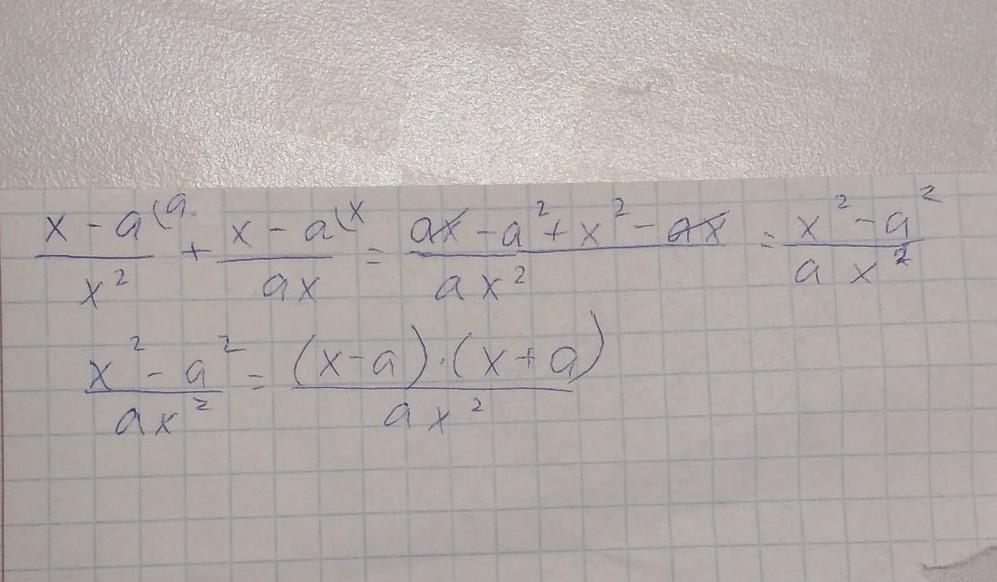 (x - a)/x² (a + (x - a)/(ax) (x = (ax - a² + x² - ax)/(ax²) = (x² - a²)/(a x²)
(x² - a²)/(ax²) = ((x-a)·(x+a))/(ax²)